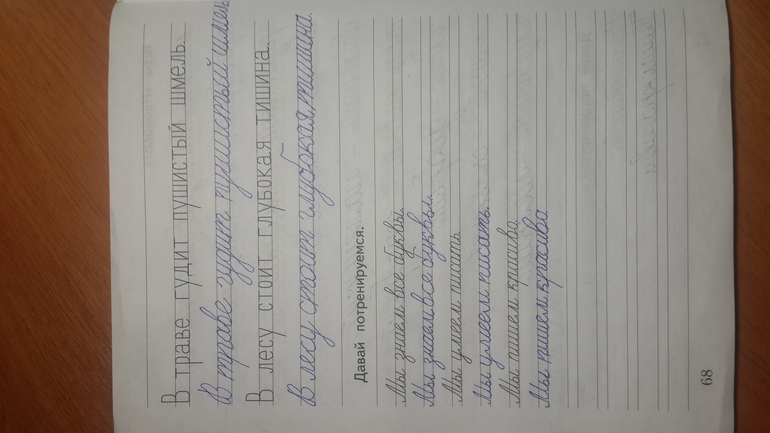 В траве гудит пушистый шмель.
В траве гудит пушистый шмель
В лесу стоит глубокая тишина.
В лесу стоит глубокая тишина.
Давай потренируемся.
Мы знаем все буквы.
Мы знаем все буквы.
Мы умеем писать.
Мы умеем писать.
Мы пишем красиво
Мы пишем красиво
68